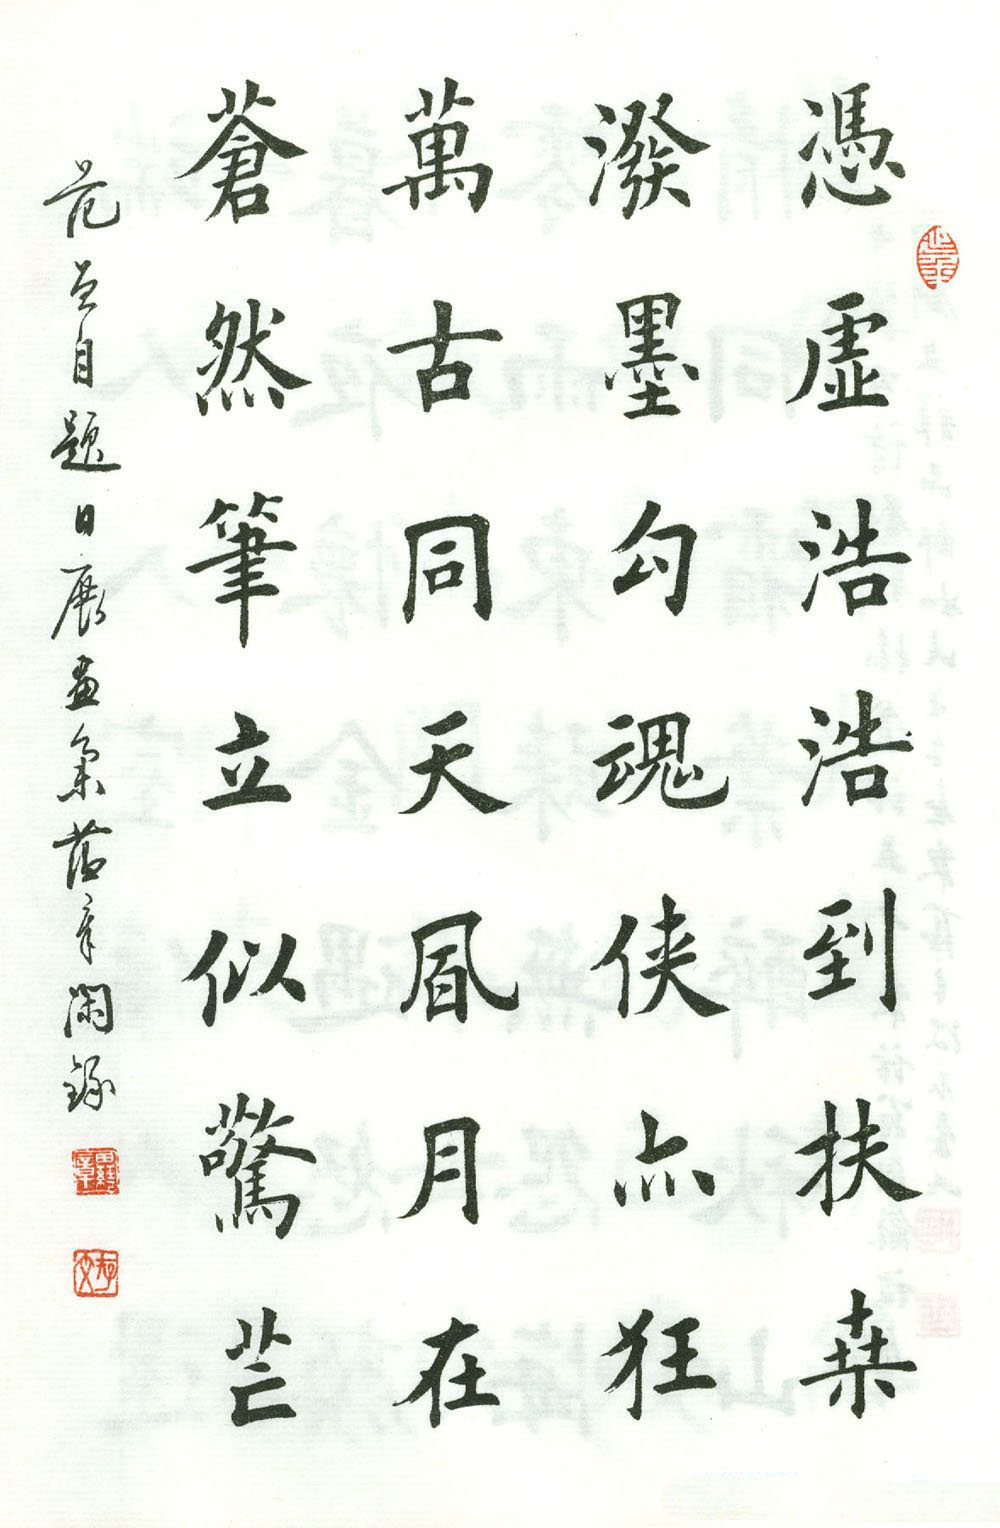 憑虛浩浩到扶桒
潑墨勾魂俠亦狂
萬古同天風月在
蒼然筆立似驚芒
范曾自題日展畫集 田蘊章閑錄